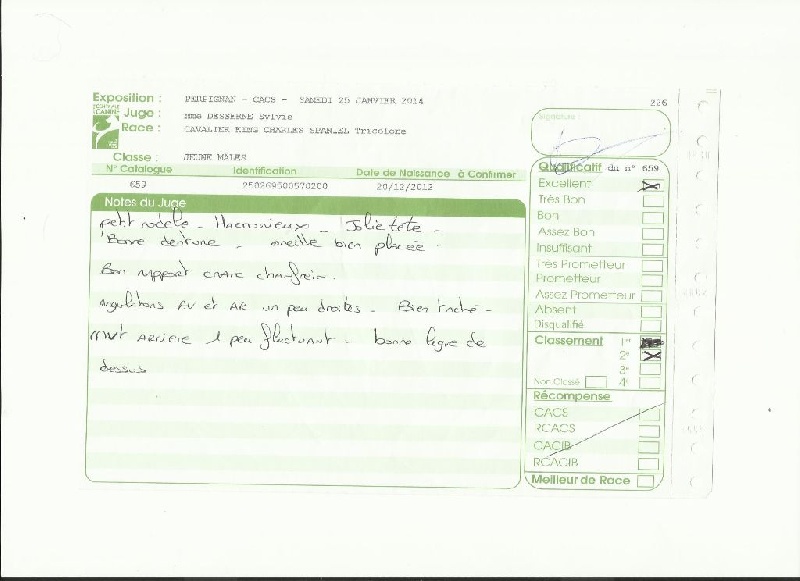 Exposition : PERPIGNAN - CACS - SAMEDI 25 JANVIER 2014 226
Juge : Mme DESSERNE Sylvie
Race : CAVALIER KING CHARLES SPANIEL Tricolore
Signature :
Classe : JEUNE MALES
N° Catalogue Identification Date de Naissance à Confirmer
659 250269500570200 20/12/2012
Notes du Juge
petit modèle - Harmonieux - Jolie tête -
Bonne denture - oreille bien placée -
Bon rapport crâne chanfrein.
angulations AV et AR un peu droites - Bien truché -
MVT Arrière 1 peu fluctuant - bonne ligne de
dessus
Qualificatif du n° 659
Excellent
Très Bon
Bon
Assez Bon
Insuffisant
Très Prometteur
Prometteur
Assez Prometteur
Absent
Disqualifié
Classement 1er
2e
3e
Non Classé 4e
Récompense
CACS
RCACS
CACIB
RCACIB
Meilleur de Race